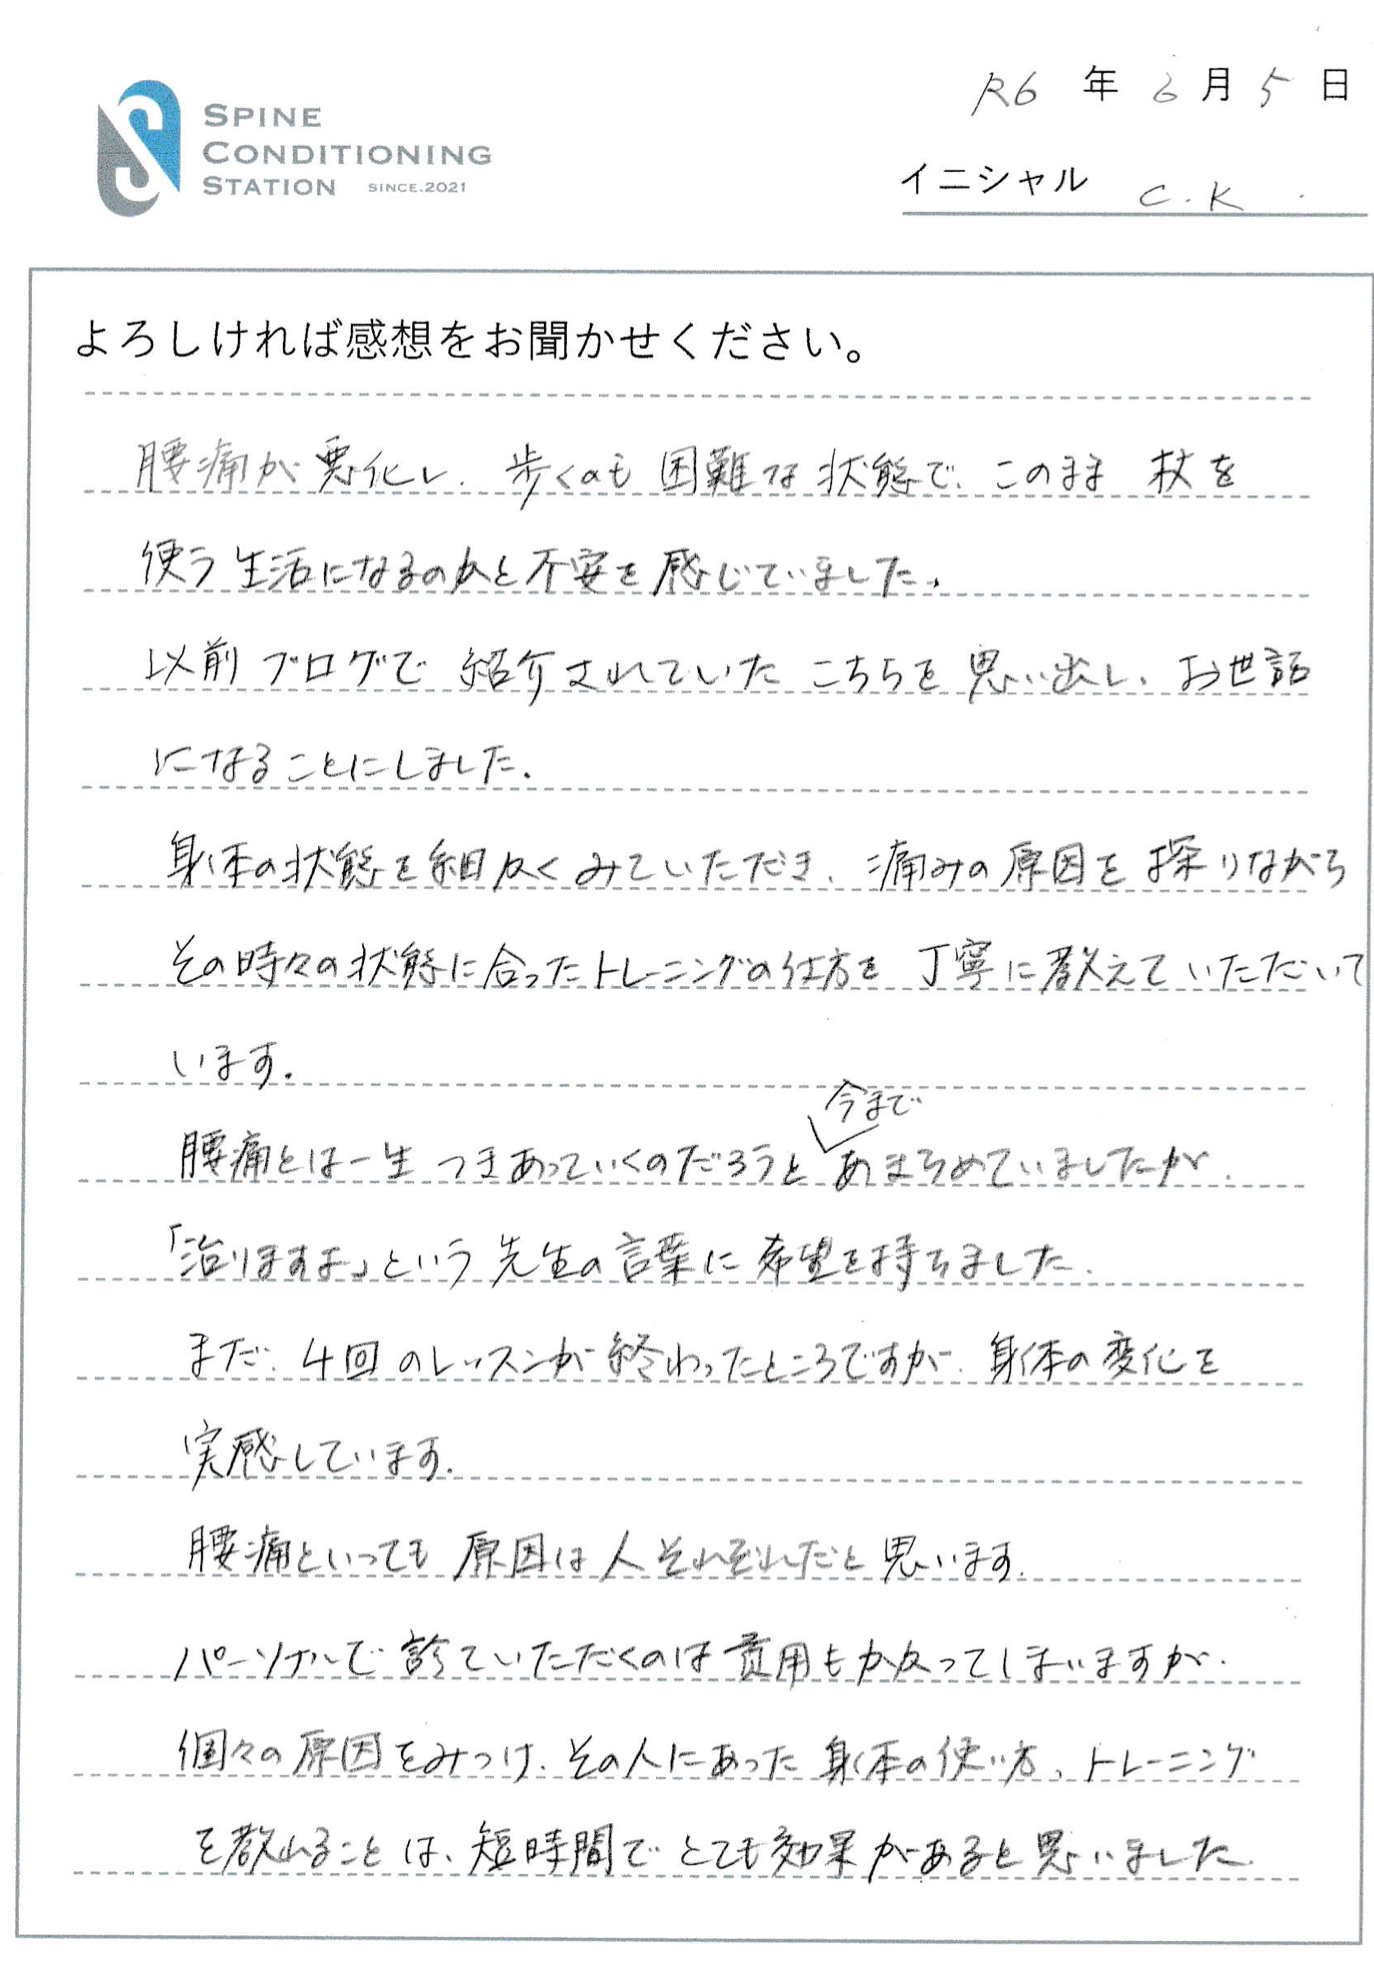 R6 年 6 月 5 日
SPINE
CONDITIONING
STATION SINCE.2021
イニシャル C.K.
よろしければ感想をお聞かせください。
腰痛が悪化し、歩くのも困難な状態で、このまま杖を
使う生活になるのかと不安を感じていました。
以前ブログで紹介されていたこちらを思い出し、お世話
になることにしました。
身体の状態を細かくみていただき、痛みの原因を探りながら
その時々の状態に合ったトレーニングの仕方を丁寧に教えていただいて
います。
今まで
腰痛とは一生つきあっていくのだろうとあきらめていましたが、
「治りますよ」という先生の言葉に希望を持ちました。
まだ、4回のレッスンが終わったところですが、身体の変化を
実感しています。
腰痛といっても原因は人それぞれだと思います。
パーソナルで診ていただくのは費用もかかってしまいますが、
個々の原因をみつけ、その人にあった身体の使い方、トレーニング
を教わることは、短時間でとても効果があると思いました。